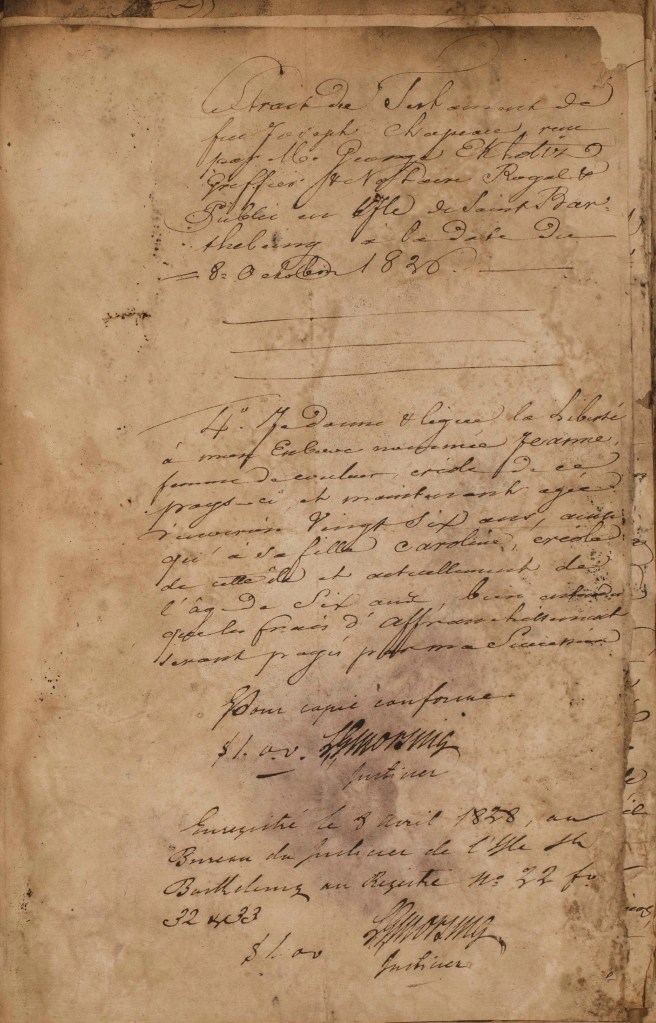 Extrait du Testament de
feu Joseph Chapeau, reçu
par Mr. George Ekholtz
Greffier & Notaire Royal &
Public en l'Isle de Saint Bar-
thelemy à la date du
8e Octobre 1826.
4° Je donne & lègue la Liberté
à mon Esclave nommée Jeanne,
femme de couleur, créole de ce
pays-ci et maintenant agée
d'environ Vingt Six ans, ainsi
qu'à sa fille Caroline, créole
de cette île et actuellement de
l'âge de Six ans, bien entendu
que les frais d'affranchissement
seront payés par ma Succession
Pour copie conforme
$1. o.v. LGMorsing
Justicier
Enregistré le 8 avril 1828, au
Bureau du Justicier de l'Isle St
Barthelemy au Registre No 22 fo
32 & 33
$1. ov LGMorsing
Justicier